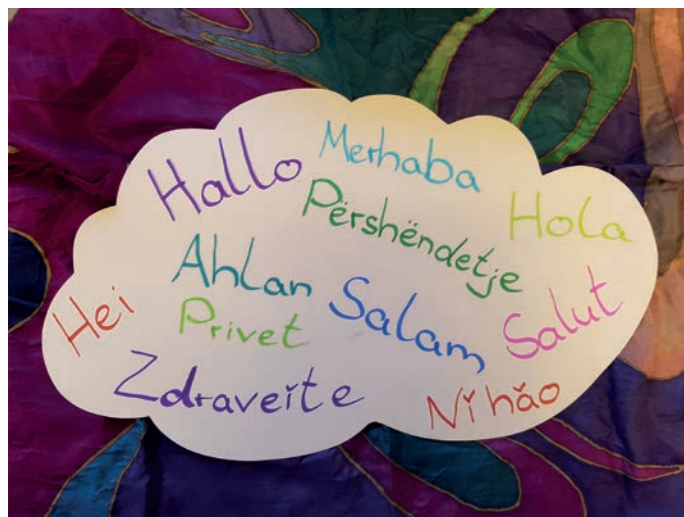 Hallo
Merhaba
Hola
Përshëndetje
Ahlan
Salam
Salut
Hei
Privet
Zdraveĭte
Nĭ hăo